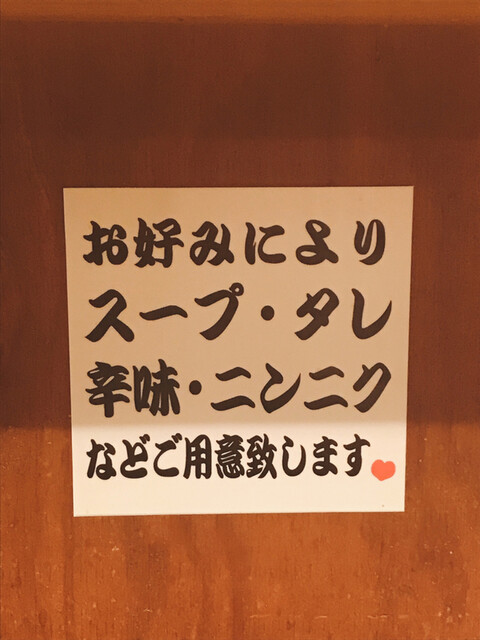 お好みにより
スープ・タレ
辛味・ニンニク
などご用意致します